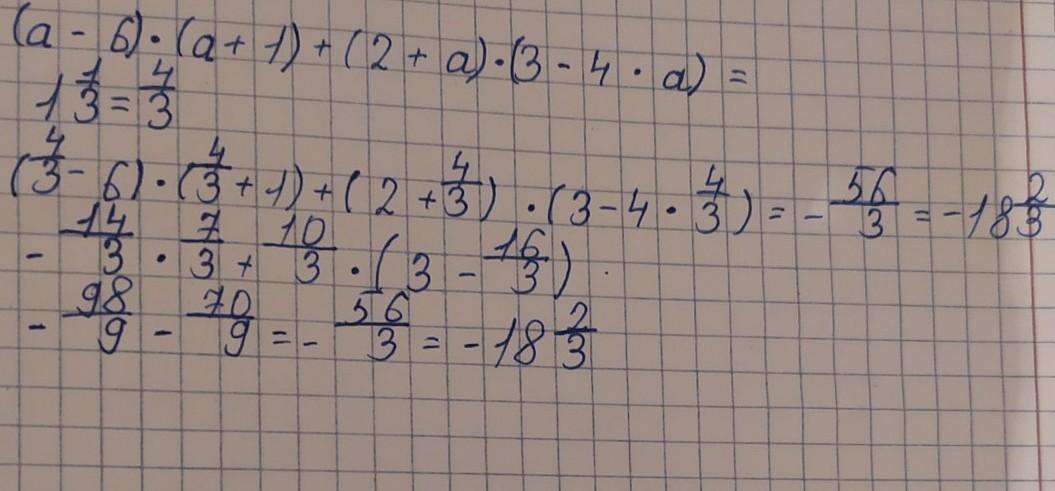 (a - 6) · (a + 1) + (2 + a) · (3 - 4 · a) =
1 1/3 = 4/3
(4/3 - 6) · (4/3 + 1) + (2 + 4/3) · (3 - 4 · 4/3) = - 56/3 = - 18 2/3
- 14/3 · 7/3 + 10/3 · (3 - 16/3)
- 98/9 - 70/9 = - 56/3 = - 18 2/3